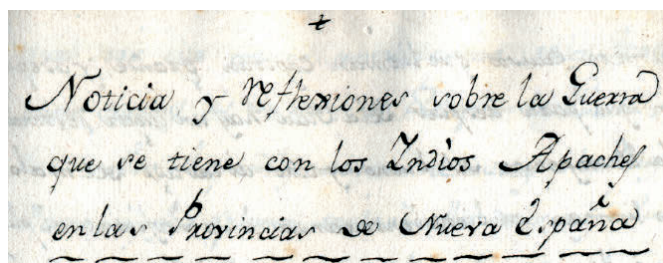 Noticia y reflexiones sobre la Guerra
que se tiene con los Indios Apaches
en las Provincias de Nueva España